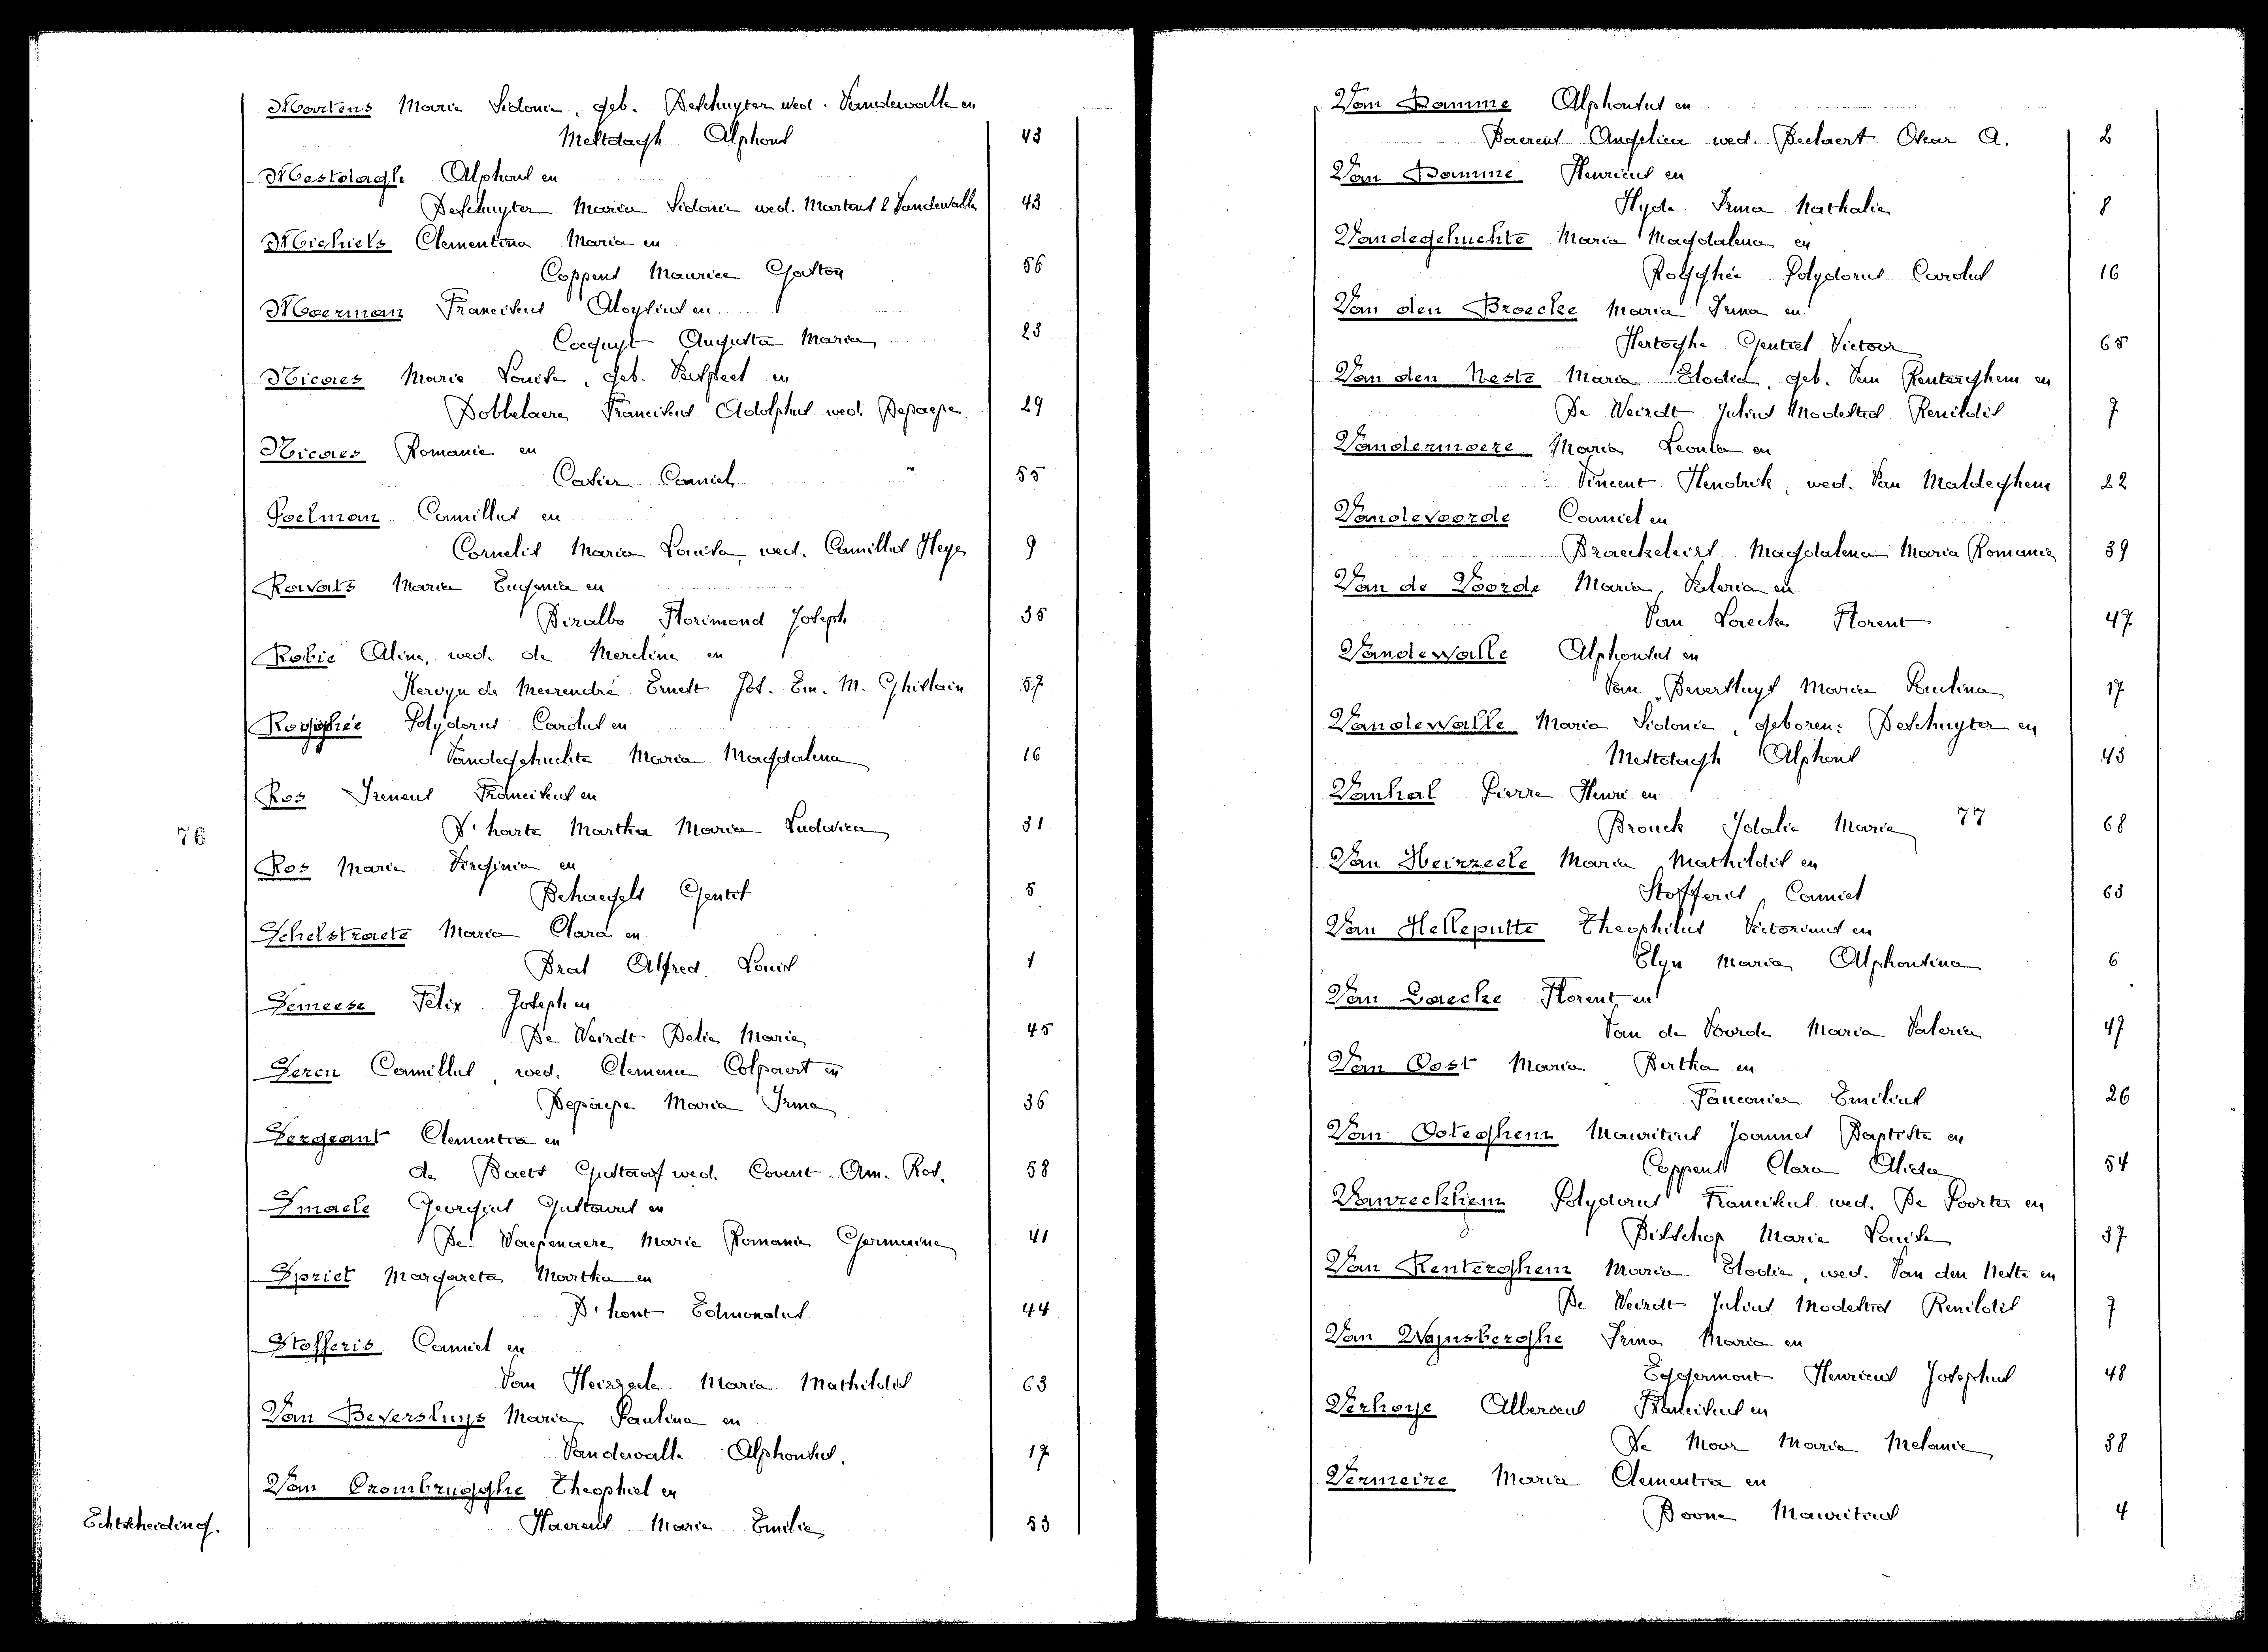 Martens Maria Sidonia, geb. Deschuyter wed. Vandewalle en
Mestdagh Alphons 43
Mestdagh Alphons en
Deschuyter Maria Sidonia wed. Martens & Vandewalle 43
Michiels Clementina Maria en
Coppens Maurice Gaston 56
Moerman Franciscus Aloysius en
Cocquyt Augusta Maria 23
Nicaes Marie Louise, geb. Verspeet en
Dobbelaere Franciscus Adolphus wed. Depaepe 29
Nicaes Romanie en
Casier Camiel 55
Poelman Camillus en
Cornelis Maria Louisa, wed. Camillus Heye 9
Ravats Maria Eugenia en
Biralbo Florimond Joseph 35
Robie Alina, wed. de Mereline en
Kervyn de Meerendré Ernest Jos. Em. M. Ghislain 57
Rogghée Polydorus Carolus en
Vandegehuchte Maria Magdalena 16
Ros Ireneus Franciscus en
D'harte Martha Maria Ludovica 31
76
Ros Maria Virginia en
Behaegels Gentil 5
Schelstraete Maria Clara en
Brat Alfred Louis 1
Semeese Felix Joseph en
De Weirdt Delia Maria 45
Sercu Camillus, wed. Clemence Colpaert en
Depaepe Maria Irma 36
Sergeant Clementia en
de Baets Gustaaf wed. Covent Am. Ros. 58
Smaele Georgius Gustavus en
De Waepenaere Marie Romanie Germaine 41
Spriet Margareta Martha en
D'hont Edmondus 44
Stofferis Camiel en
Van Heirzeele Maria Mathildis 63
Van Beversluys Maria Paulina en
Vandewalle Alphonsus. 17
Van Crombrugghe Theophiel en
Echtscheiding. Haerens Marie Emilie 53
Van Damme Alphonsus en
Baerens Angelica wed. Beelaert Oscar A. 2
Van Damme Henricus en
Hyde Irma Nathalie 8
Vandegehuchte Maria Magdalena en
Rogghée Polydorus Carolus 16
Van den Broecke Maria Irma en
Hertoghe Gentiel Victoor 65
Van den Neste Maria Elodia, geb. Van Renterghem en
De Weirdt Julius Modestus Renildis 7
Vandermoere Maria Leonla en
Vincent Hendrik, wed. Van Maldeghem 22
Vandevoorde Camiel en
Braeckeleirs Magdalena Maria Romanie 39
Van de Voorde Maria Valeria en
Van Laecke Florent 47
Vandewalle Alphonsus en
Van Beversluys Maria Paulina 17
Vandewalle Maria Sidonie, geboren: Deschuyter en
Mestdagh Alphons 43
Vanhal Pierre Henri en
Brouck Idalie Marie 77 68
Van Heirzeele Maria Mathildis en
Stofferis Camiel 63
Van Helleputte Theophilus Victorinus en
Elyn Maria Alphonsina 6
Van Laecke Florent en
Van de Voorde Maria Valeria 47
Van Oost Maria Bertha en
Fauconier Emilius 26
Van Ooteghem Mauritius Joannes Baptiste en
Coppens Clara Alida 54
Vanreckhem Polydorus Franciscus wed. De Poorter en
Bisschop Marie Louise 37
Van Renterghem Maria Elodie, wed. Van den Neste en
De Weirdt Julius Modestus Renildis 7
Van Wajnsberghe Irma Maria en
Eggermont Henricus Josephus 48
Verhoye Albericus Franciscus en
De Moor Maria Melanie 38
Vermeire Maria Clementia en
Boone Mauritius 4